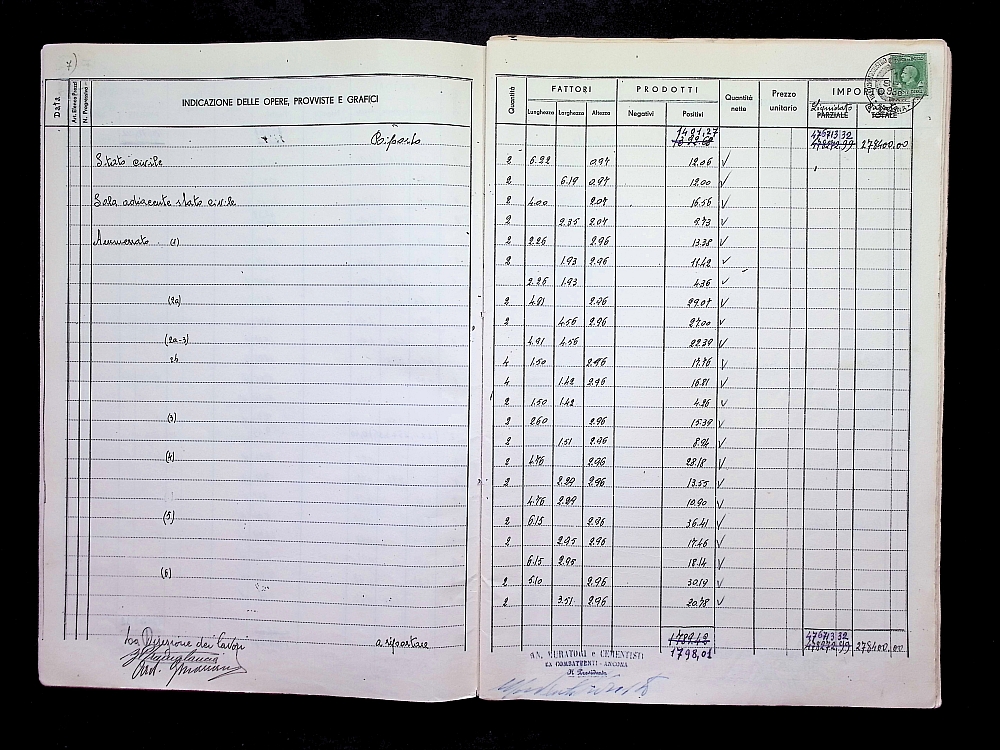 Data
An. Elenco Prezzi
N. Progressivo
INDICAZIONE DELLE OPERE, PROVVISTE E GRAFICI
Riporto
Stato civile
Sala adiacente stato civile
Ammezzato (1)
(2a)
(2a-3)
2b
(3)
(4)
(5)
(6)
La Direzione dei lavori
a riportare
Quantità
FATTORI
PRODOTTI
Quantità nette
Prezzo unitario
Lunghezza Larghezza Altezza
Negativi Positivi
Liquidato
PARZIALE
TOTALE
1491,27
476713,32
478272,99 278400.00
2 6.22 0.97 12.06 √
2 6.19 0.97 12.00 √
2 4.00 2.07 16.56 √
2 2.35 2.07 9.73 √
2 2.26 2.96 13.38 √
2 1.93 2.96 11.42 √
2.26 1.93 4.36 √
2 4.91 2.96 29.07 √
2 4.56 2.96 27.00 √
4.91 4.56 22.39 √
4 1.50 2.96 17.76 √
4 1.42 2.96 16.81 √
2 1.50 1.42 4.26 √
2 2.60 2.96 15.39 √
2 1.51 2.96 8.94 √
2 4.76 2.96 28.18 √
2 2.29 2.96 13.55 √
4.76 2.29 10.90 √
2 6.15 2.96 36.41 √
2 2.95 2.96 17.46 √
6.15 2.95 18.14 √
2 5.10 2.96 30.19 √
2 3.51 2.96 20.78 √
1789,42
1798,01
476713,32
478272,99 278400,00
AN. MURATORI e CEMENTISTI
EX COMBATTENTI - ANCONA
Il Presidente